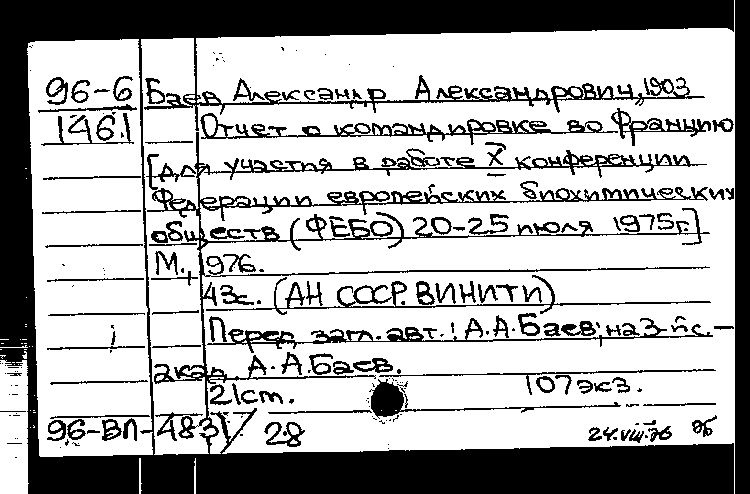 96-6 Баев, Александр Александрович, 1903
1461 Отчет о командировке во Францию
[для участия в работе X конференции
Федерации европейских биохимических
обществ (ФЕБО) 20-25 июля 1975г.]
М., 1976.
43с. (АН СССР. ВИНИТИ)
Перед загл. авт.: А.А.Баев; на 3-й с.-
акад. А.А.Баев.
21см. 107экз.
96-ВЛ-4831/28
24.VIII.76